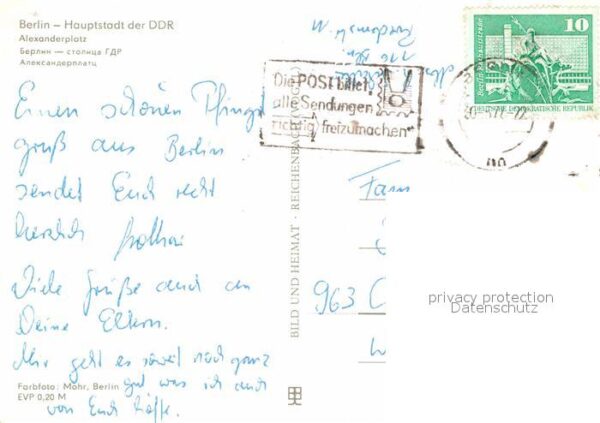 Berlin – Hauptstadt der DDR
Alexanderplatz
Берлин — столица ГДР
Александерплатц
Einen schönen Pfingst
gruß aus Berlin
sendet Euch recht
herzlich Lothar
Viele Grüße auch an
Deine Eltern.
Mir geht es soweit noch ganz
gut was ich auch
von Euch hoffe.
Farbfoto: Mohr, Berlin
EVP 0,20 M
BILD UND HEIMAT · REICHENBACH (VOGTL)
Die POST bittet
alle Sendungen
richtig freizumachen"
10
DEUTSCHE DEMOKRATISCHE REPUBLIK
Fam
963 C
privacy protection
Datenschutz